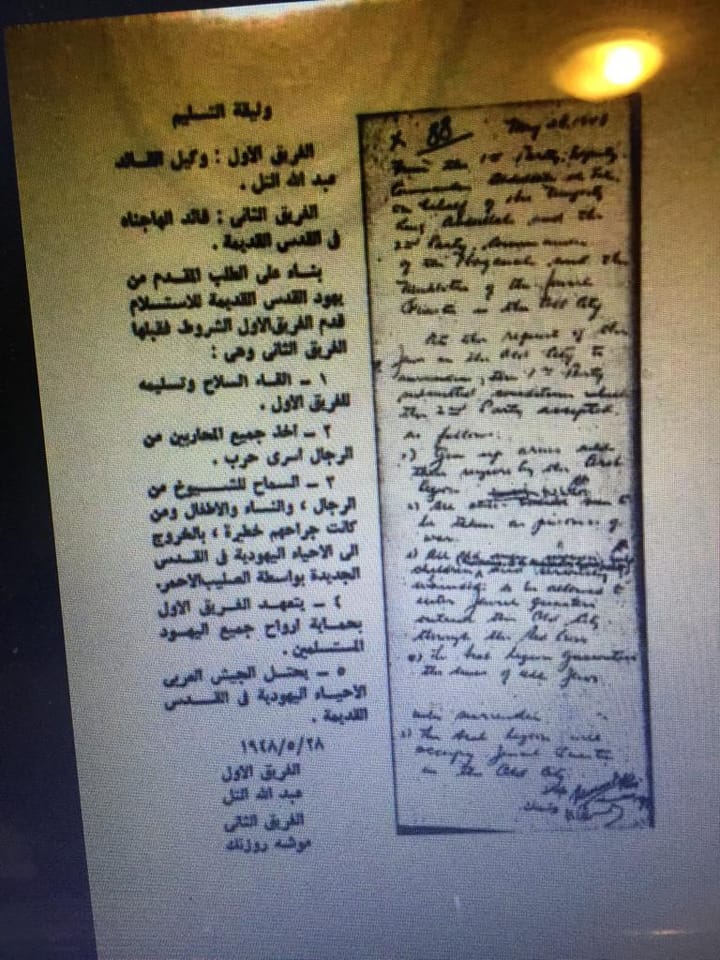 وثيقة التسليم
الفريق الاول : وكيل القائد
عبد الله التل .
الفريق الثانى : قائد الهاجناه
فى القدس القديمة .
بناء على الطلب المقدم من
يهود القدس القديمة للاستسلام
قدم الفريق الاول الشروط فقبلها
الفريق الثانى وهى :
١ ــ القاء السلاح وتسليمه
للفريق الاول .
٢ ــ اخذ جميع المحاربين من
الرجال اسرى حرب .
٣ ــ السماح للشيوخ من
الرجال ، والنساء والاطفال ومن
كانت جراحهم خطيرة ، بالخروج
الى الاحياء اليهودية فى القدس
الجديدة بواسطة الصليب الاحمر.
٤ ــ يتعهد الفريق الاول
بحماية ارواح جميع اليهود
المستسلمين .
٥ ــ يحتل الجيش العربى
الاحياء اليهودية فى القدس
القديمة .
١٩٤٨/٥/٢٨
الفريق الاول
عبد الله التل
الفريق الثانى
موشه روزنك
x 88 May 28, 1948
the 1st Party, Deputy
Commander Abdullah
on behalf of His Majesty
King Abdullah and the
2nd Party,
of the Haganah and the
of the Jewish
in the Old City
At the request of the
Jews in the Old City to
surrender, the 1st Party
submitted conditions which
the 2nd Party accepted.
as follows:
1) Give up arms
by the Arab
Legion
2) All men to
be taken as prisoners of
war.
3) All
children
wounded to be allowed to
enter Jewish quarters
outside the Old City
through the Red Cross
4) The Arab Legion guarantees
the lives of all Jews
who surrender.
5) The Arab Legion will
occupy Jewish Quarter
in the Old City